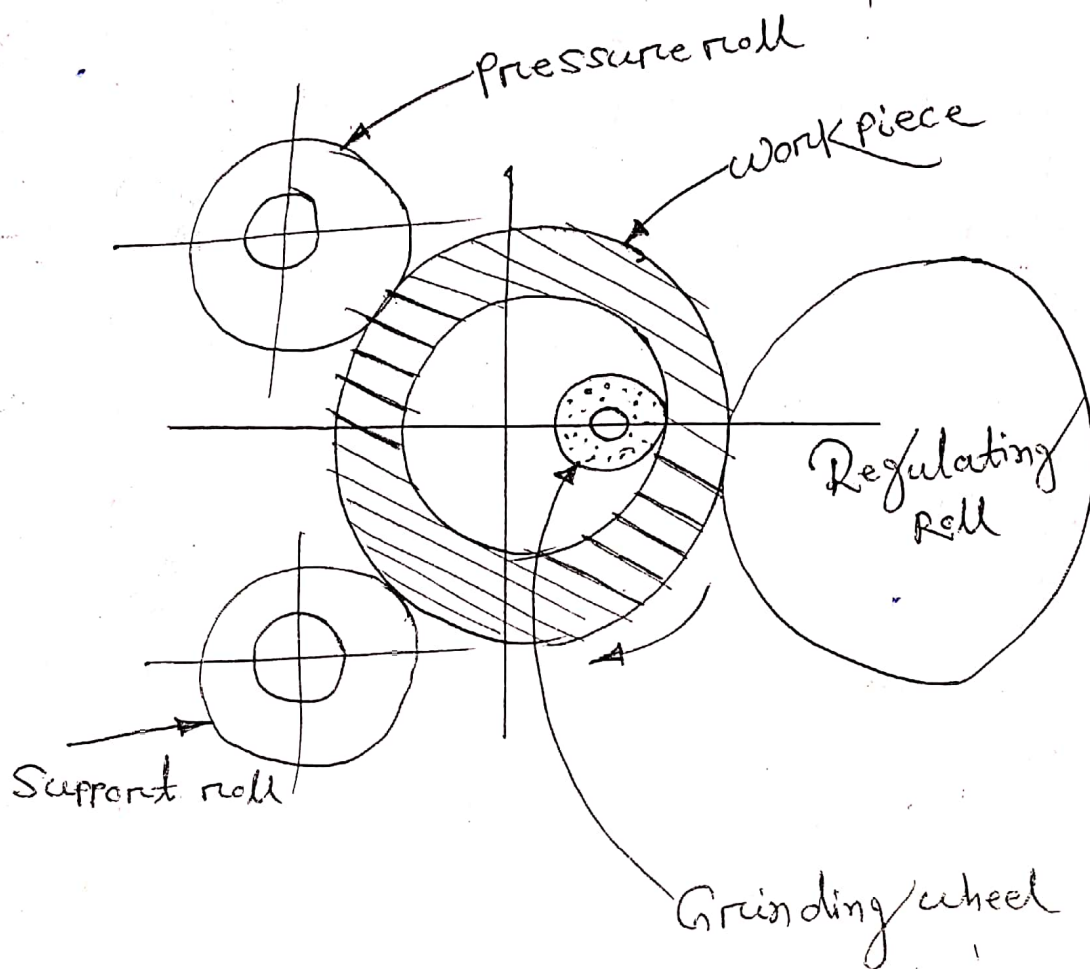 Pressure roll
Workpiece
Regulating
Roll
Support roll
Grinding wheel